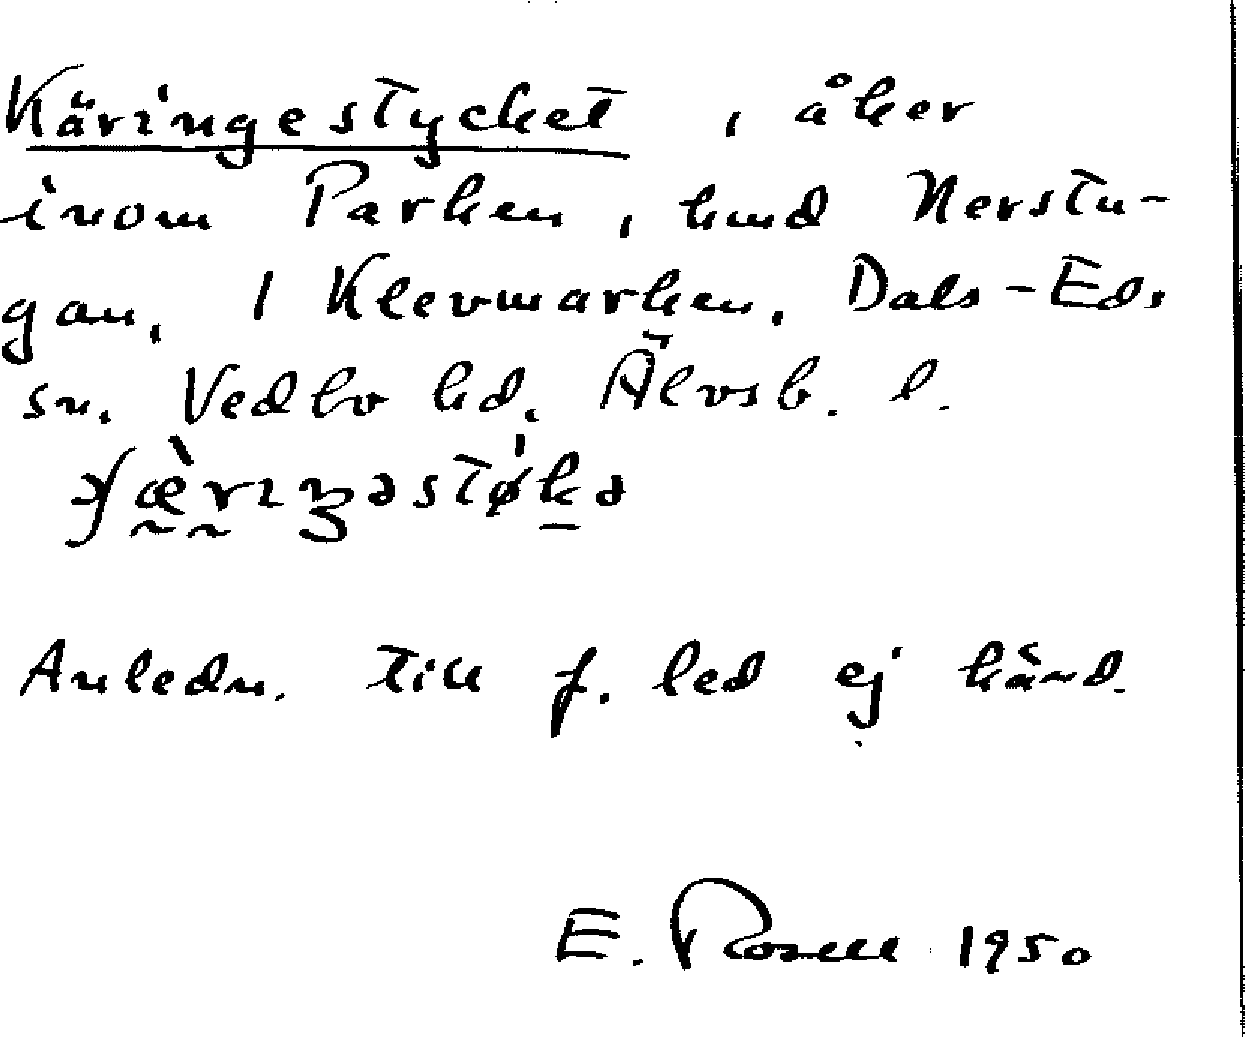 Käringestycket, åker
inom Parken, hmd Nerstu-
gan, 1 Klevmarken, Dals-Eds
sn. Vedbo hd. Älvsb. l.
Anledn. till f. led ej känd.
E. Rosell 1950